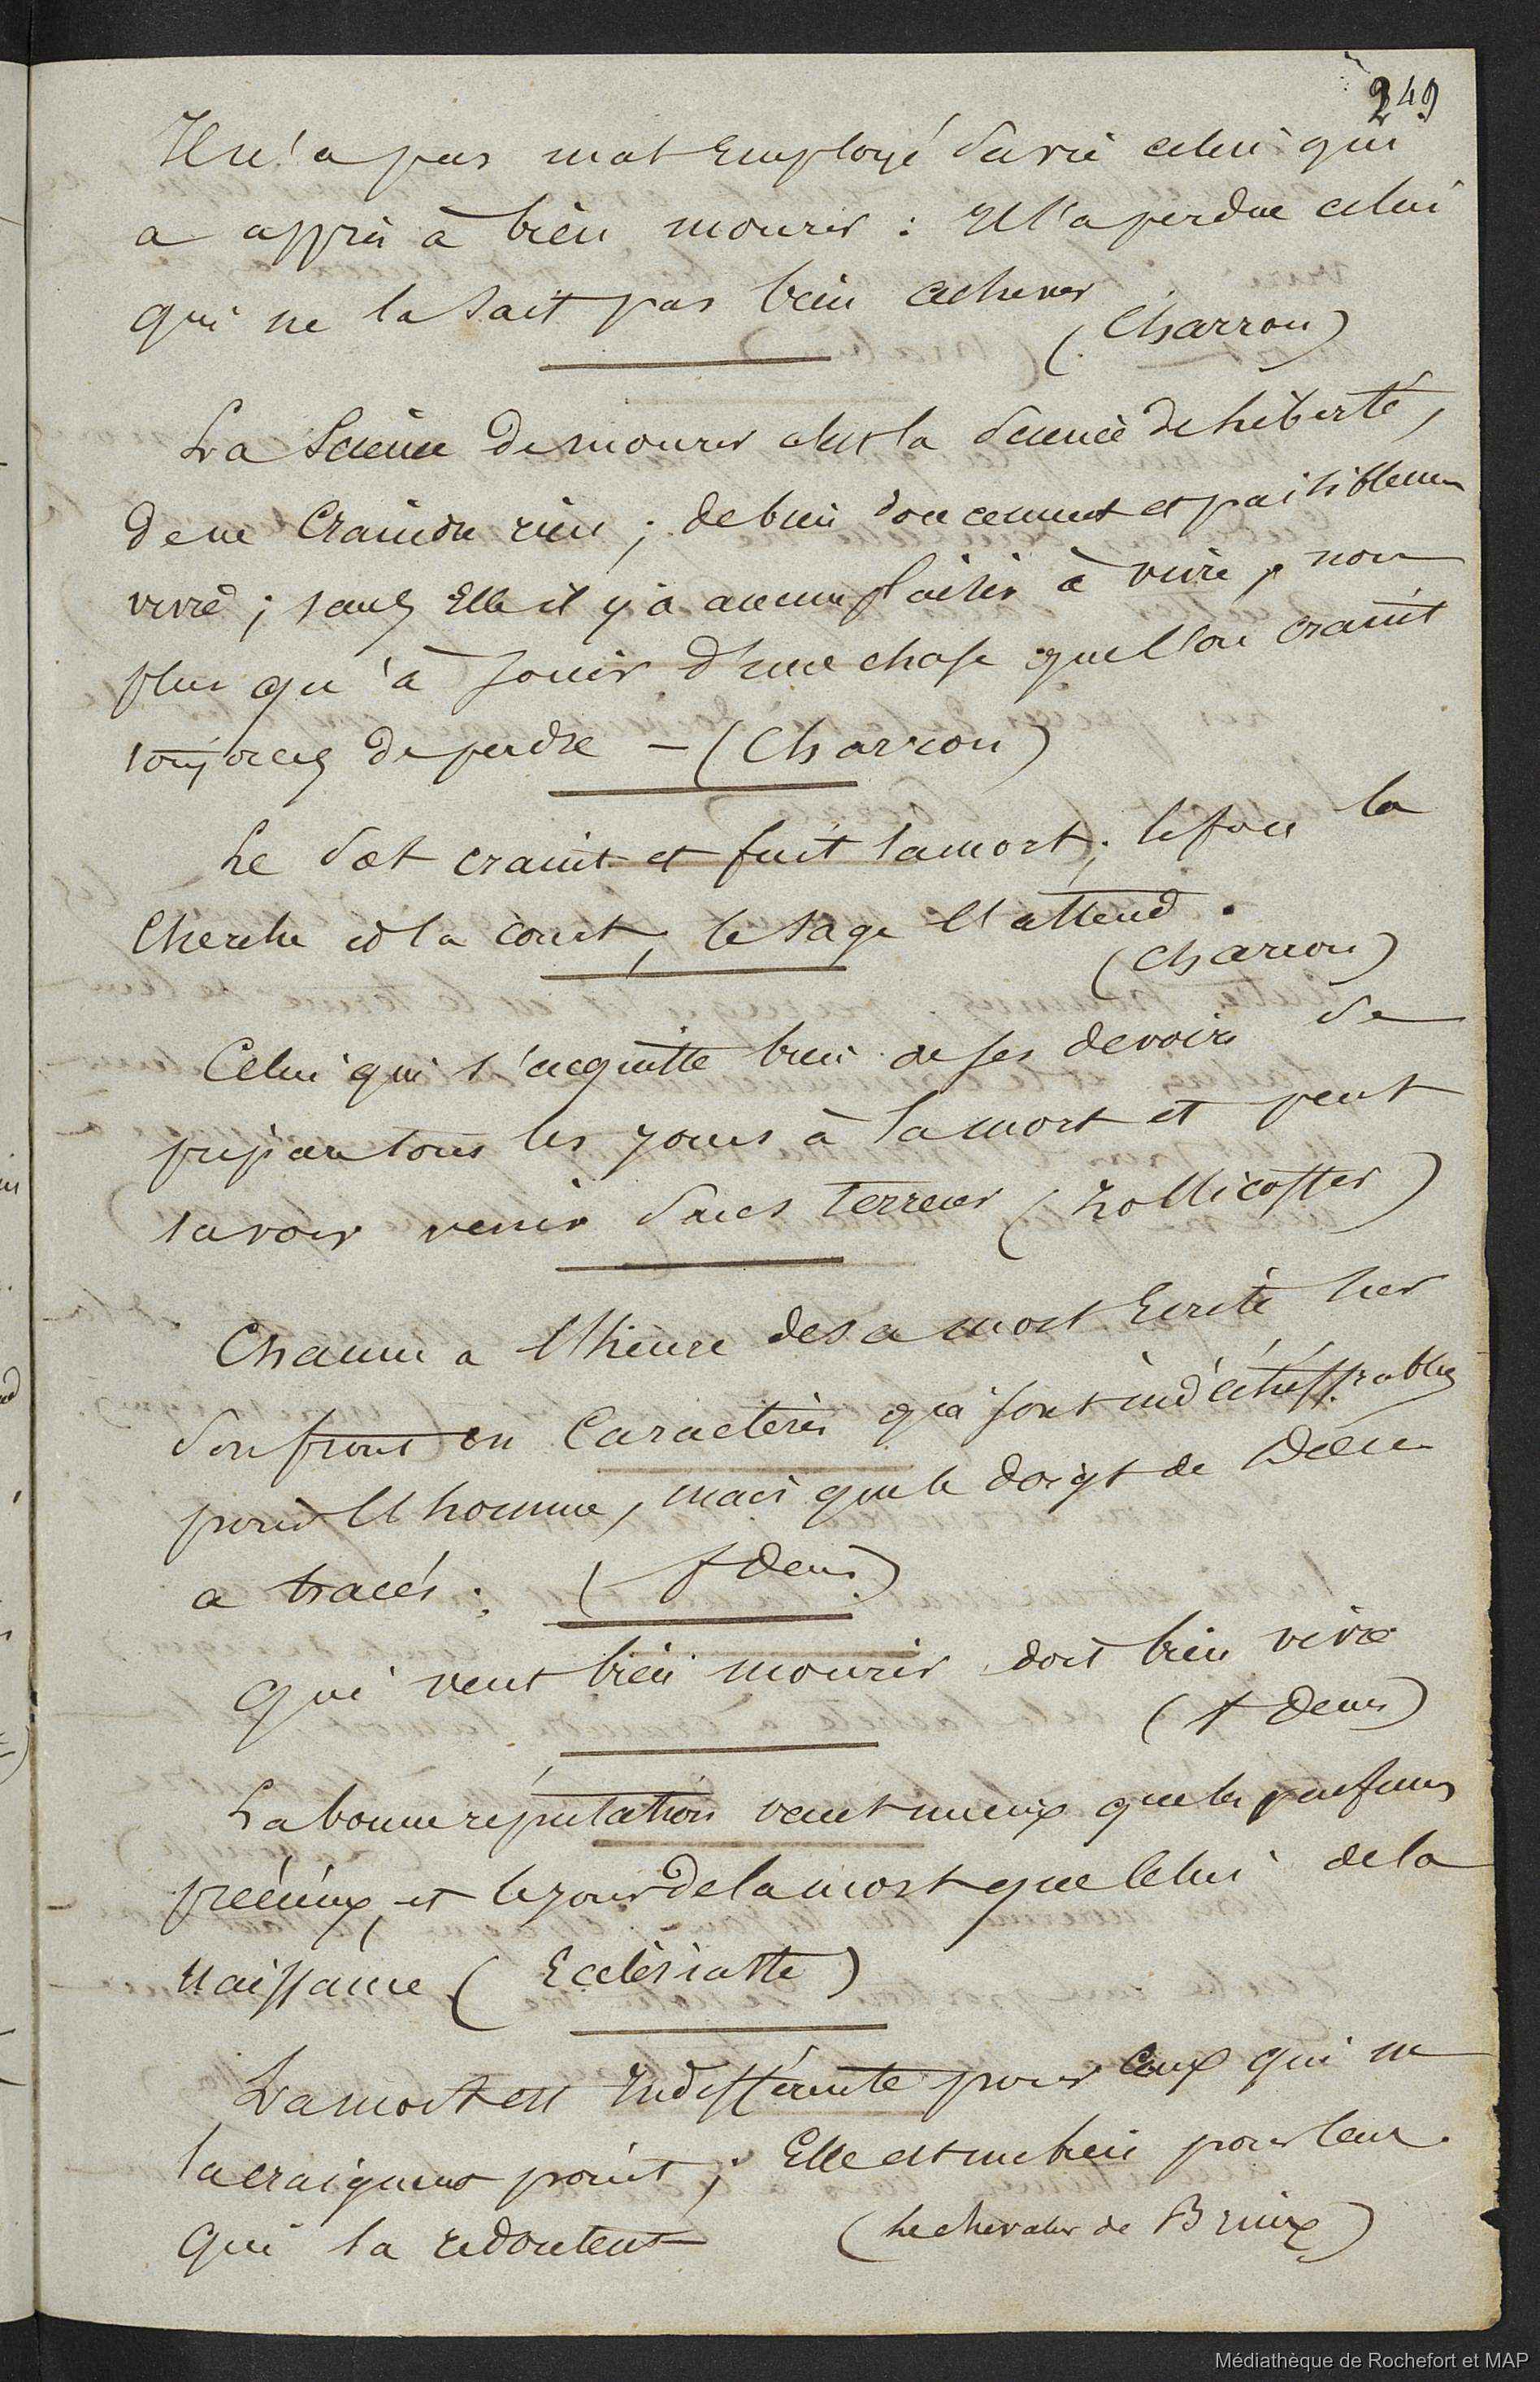 249
Il n'a pas mal Employé sa vie celui qui
a appris à bien mourir : Il l'a perdue celui
qui ne la sait pas bien achever
(Charron)
La Science de mourir c'est la science de liberté,
de ne craindre rien ; de bien doucement et paisiblement
vivre ; sans Elle il y a aucun plaisir à vivre, non
plus qu'à jouir d'une chose que l'on craint
toujours de perdre – (Charron)
Le sot craint et fuit la mort ; le fou la
Cherche et la court, le sage l'attend.
(Charron)
Celui qui s'acquitte bien de ses devoirs se
prépare tous les jours à la mort et peut
la voir venir sans terreur (Zollicoffer)
Chacun a l'heure de sa mort Ecrite sur
son front en Caractères qui sont indéchiffrables
pour l'homme, mais que le doigt de Dieu
a tracés. (St Denis)
Qui veut bien mourir doit bien vivre
(St Denis)
La bonne réputation vaut mieux que les parfums
précieux, et le jour de la mort que celui de la
Naissance (Ecclésiaste)
La mort est Indifférente pour Ceux qui ne
la craignent point ; Elle est un bien pour ceux
qui la redoutent (Le chevalier de Bruix)
Médiathèque de Rochefort et MAP